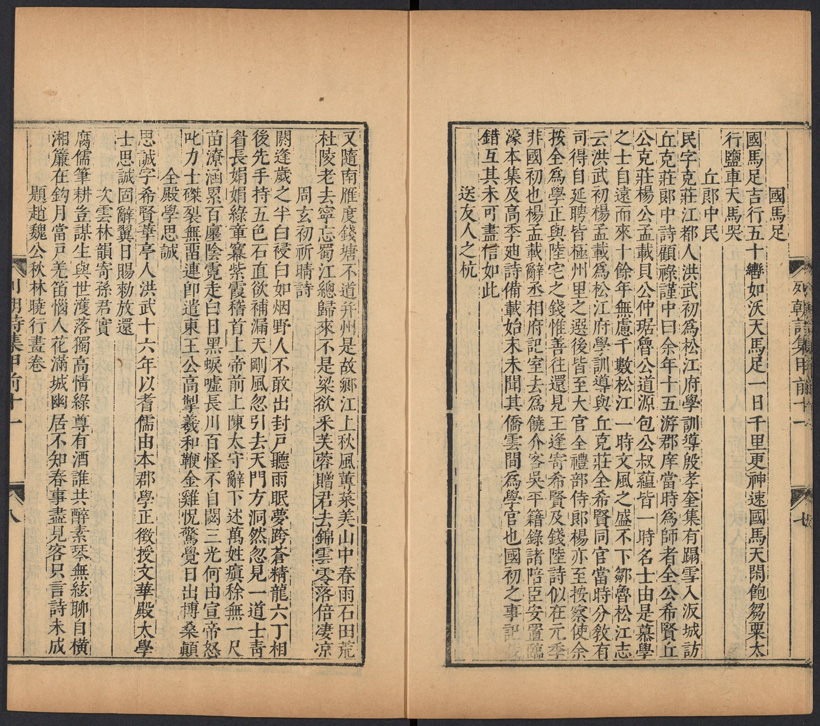 國馬足
國馬足吉行五十轡如沃天馬足一日千里更神速國馬天閑飽芻粟太
行鹽車天馬哭
丘郎中民
民字克莊江都人洪武初為松江府學訓導殷孝奎集有躡雪入泖城訪
丘克莊郎中詩顧祿謹中曰余年十五游郡庠當時為師者全公希賢丘
公克莊楊公孟載貝公仲琚魯公道源包公叔蘊皆一時名士由是慕學
之士自遠而來十餘年無慮千數松江一時文風之盛不下鄒魯松江志
云洪武初楊孟載為松江府學訓導與丘克莊全希賢同官當時分敎有
司得自延聘皆極州里之選後皆至大官全禮部侍郎楊亦至按察使余
按全為學正與陸宅之錢惟善往還見王逢寄希賢及錢陸詩似在元季
非國初也楊孟載辭丞相府記室去為饒介客吳平籍錄諸陪臣安置臨
濠本集及高季迪詩備載始末未聞其僑雲間為學官也國初之事記
錯互其未可盡信如此
送友人之杭
又隨南雁度錢塘不道并州是故鄉江上秋風蓴菜美山中春雨石田荒
杜陵老去寧忘蜀江總歸來不是梁欲釆芙蓉贈君去錦雲零落倍凄凉
周玄初祈晴詩
閼逢歲之半白祲白如烟野人不敢出封戸聽雨眠夢跨蒼精龍六丁相
後先手持五色石直欲補漏天剛風忽引去天門方洞然忽見一道士靑
眘長娟娟綠章羃紫霞稽首上帝前上陳太守辭下述萬姓瘨稌無一尺
苗潦涵累百廛陰霓走白日黒蜧噓長川百怪不自閟三光何由宣帝怒
叱力士磔裂無畱連卽遣東王公高揫羲和鞭金雞恍驚覺日出摶桑顛
全殿學思誠
思誠字希賢華亭人洪武十六年以耆儒由本郡學正徵授文華殿大學
士思誠固辭翼日賜勑放還
次雲林韻寄孫君實
腐儒筆耕豈謀生與世濩落獨高情綠尊有酒誰共醉素琴無絃聊自橫
湘簾在鈎月當戸羌笛惱人花滿城幽居不知春事盡見客只言詩未成
題趙魏公秋林曉行畫卷
列朝詩集甲前十一
八